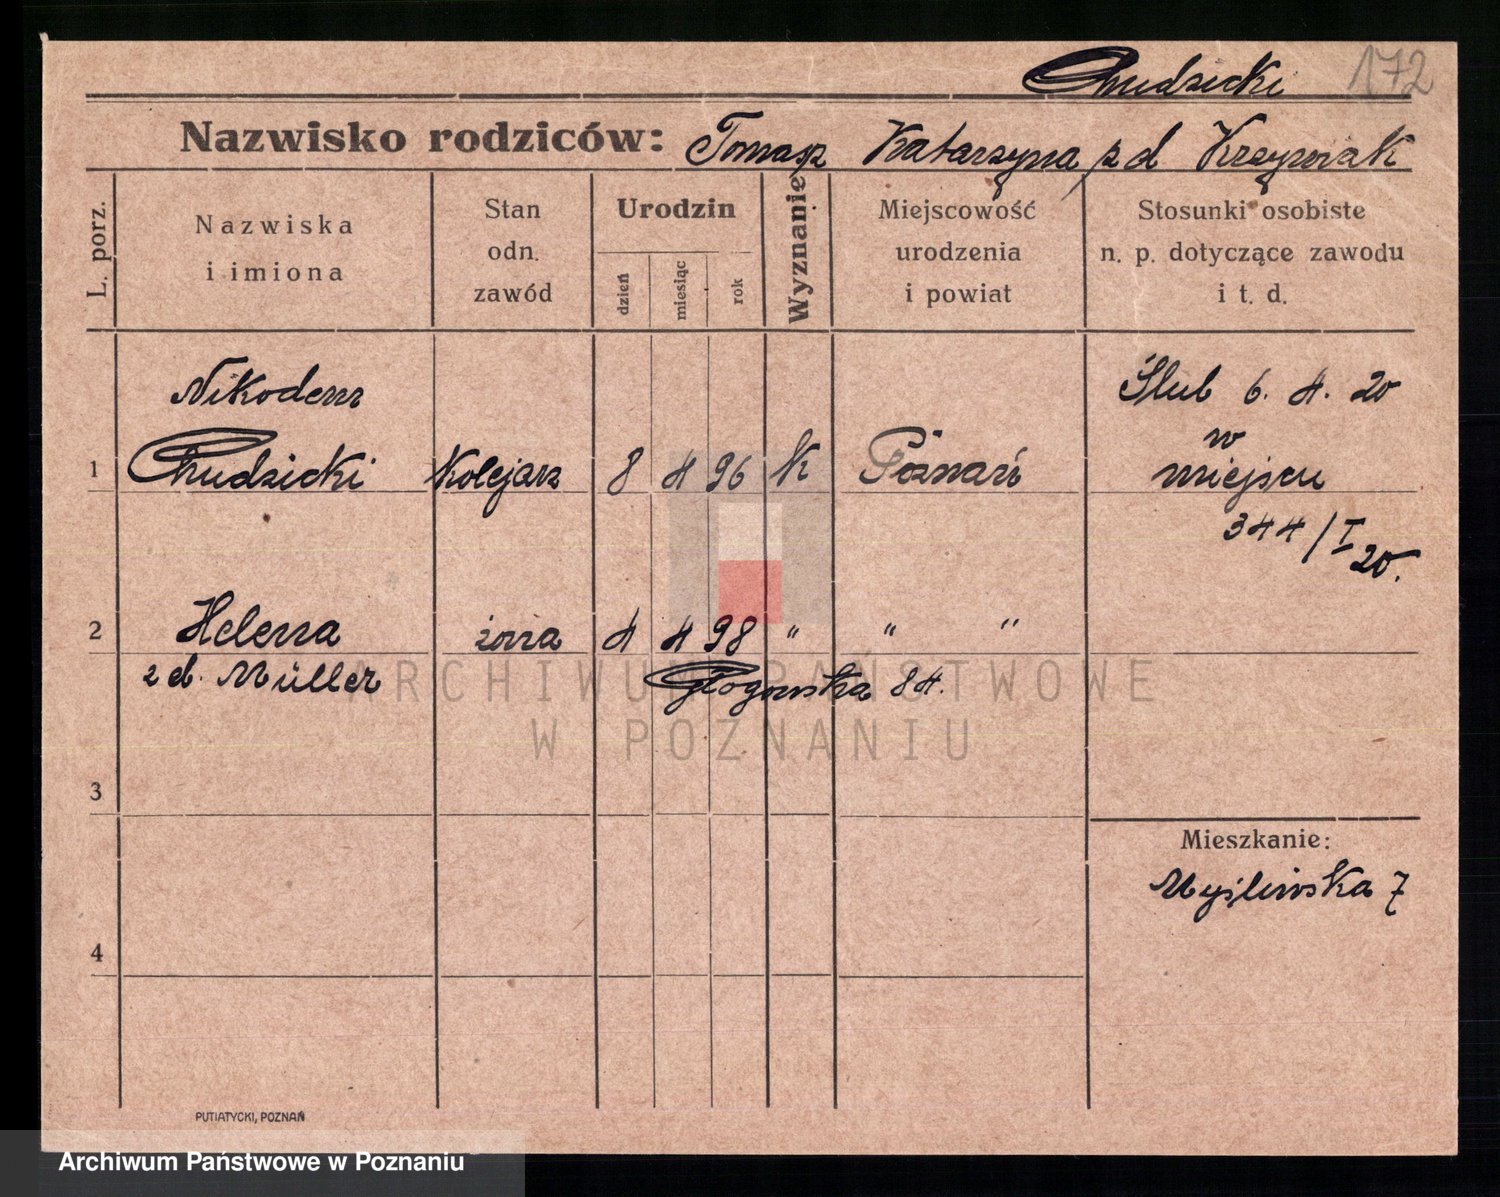 Chudzicki 172
Nazwisko rodziców: Tomasz Katarzyna z d Krzyżoiak
L. porz.
Nazwiska
i imiona
Stan
odn.
zawód
Urodzin
dzień
miesiąc
rok
Wyznanie
Miejscowość
urodzenia
i powiat
Stosunki osobiste
n. p. dotyczące zawodu
i t. d.
Nikodem
1 Chudzicki Kolejarz 8 4 96 K Poznań
Ślub 6. 4. 20
w
miejscu
344/I
20.
2 Helena żona 4 4 98 " " "
z d. Müller
Głogowska 84.
ARCHIWUM PAŃSTWOWE
W POZNANIU
3
Mieszkanie:
Myśliwska 7
4
PUTIATYCKI, POZNAŃ
Archiwum Państwowe w Poznaniu